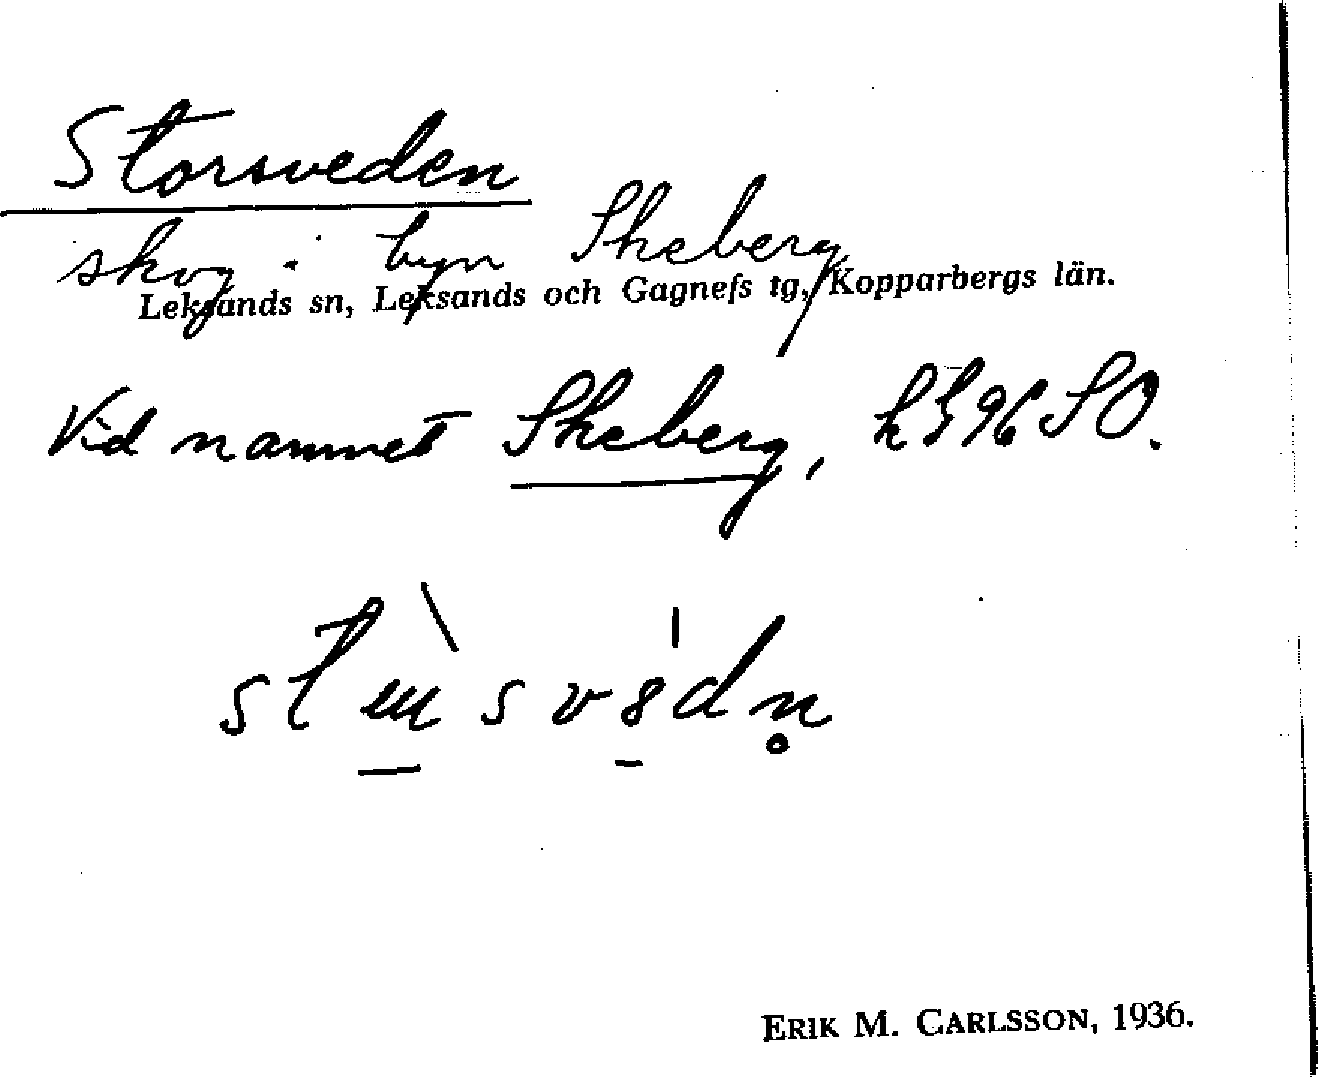 Storsveden
skog i byn Skeberg
Leksands sn, Leksands och Gagnefs tg, Kopparbergs län.
Vid namnet Skeberg, h596SO.
ERIK M. CARLSSON, 1936.